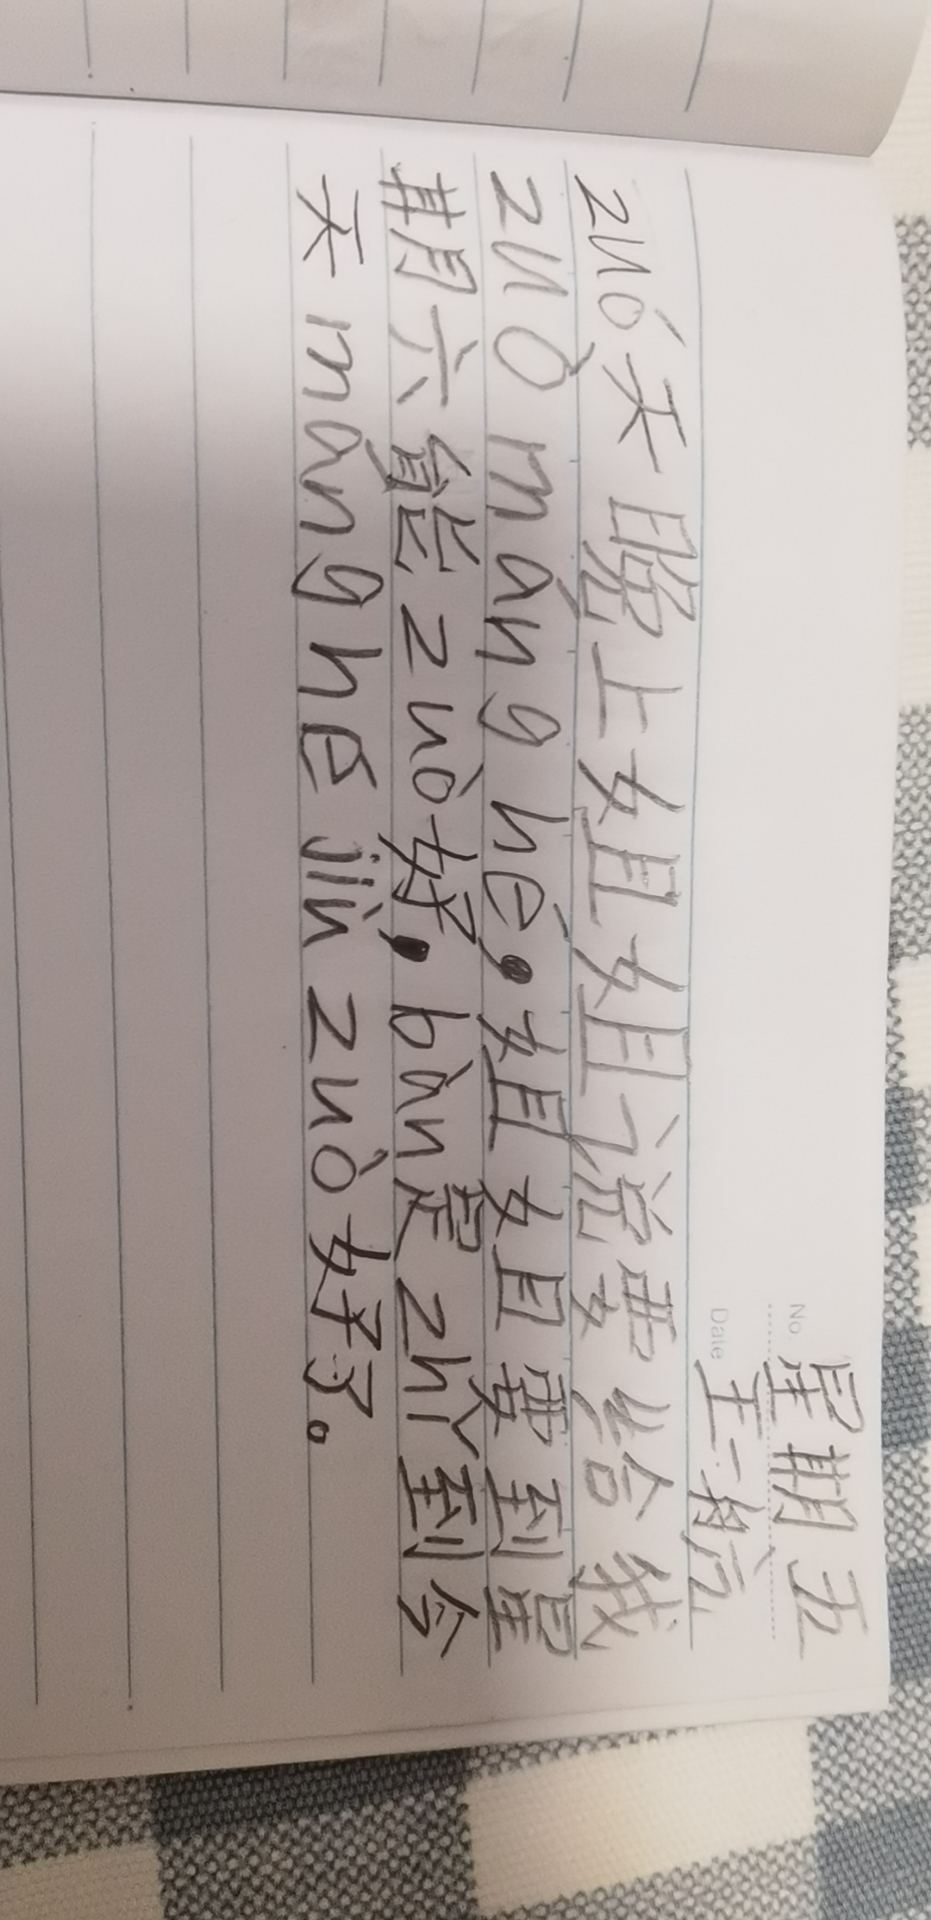 No.
星期五
Date
zuó天晚上姐姐说要给我
zuò máng hé，姐姐要到星
期六能zuò好，bàn是zhì到今
天máng hé jiù zuò好了。